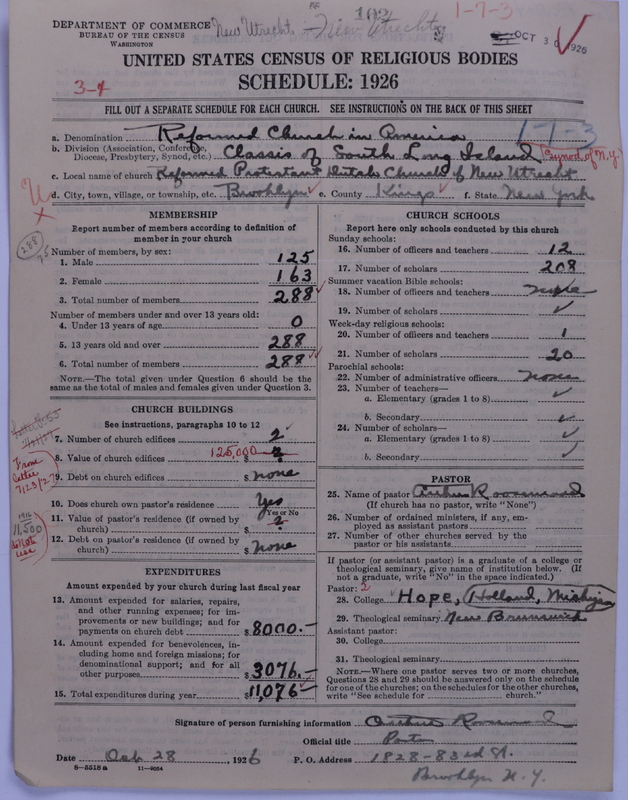 DEPARTMENT OF COMMERCE
BUREAU OF THE CENSUS
WASHINGTON
New Utrecht - New Utrecht
102
1-7-3
OCT 30 1926
UNITED STATES CENSUS OF RELIGIOUS BODIES
SCHEDULE: 1926
3-4
FILL OUT A SEPARATE SCHEDULE FOR EACH CHURCH. SEE INSTRUCTIONS ON THE BACK OF THIS SHEET
a. Denomination Reformed Church in America
1-7-3
b. Division (Association, Conference, Diocese, Presbytery, Synod, etc.) Classis of South Long Island Synod of N.Y.
c. Local name of church Reformed Protestant Dutch Church of New Utrecht
d. City, town, village, or township, etc. Brooklyn e. County Kings f. State New York
MEMBERSHIP
Report number of members according to definition of
member in your church
288
Number of members, by sex:
1. Male 125
2. Female 163
3. Total number of members 288
Number of members under and over 13 years old:
4. Under 13 years of age 0
5. 13 years old and over 288
6. Total number of members 288
NOTE.—The total given under Question 6 should be the
same as the total of males and females given under Question 3.
CHURCH BUILDINGS
See instructions, paragraphs 10 to 12
7. Number of church edifices 2
8. Value of church edifices 125,000 $ ?
From letter 7/23/27
9. Debt on church edifices $ none
10. Does church own pastor's residence? Yes
Yes or No
1916 11,500 do not use
11. Value of pastor's residence (if owned by
church) $ ?
12. Debt on pastor's residence (if owned by
church) $ none
EXPENDITURES
Amount expended by your church during last fiscal year
13. Amount expended for salaries, repairs,
and other running expenses; for im-
provements or new buildings; and for
payments on church debt $ 8000.-
14. Amount expended for benevolences, in-
cluding home and foreign missions; for
denominational support; and for all
other purposes $ 3076.-
15. Total expenditures during year $ 11,076-
CHURCH SCHOOLS
Report here only schools conducted by this church
Sunday schools:
16. Number of officers and teachers 12
17. Number of scholars 208
Summer vacation Bible schools:
18. Number of officers and teachers none
19. Number of scholars ✓
Week-day religious schools:
20. Number of officers and teachers 1
21. Number of scholars 20
Parochial schools:
22. Number of administrative officers none
23. Number of teachers—
a. Elementary (grades 1 to 8) ✓
b. Secondary ✓
24. Number of scholars—
a. Elementary (grades 1 to 8) ✓
b. Secondary ✓
PASTOR
25. Name of pastor Arthur
(If church has no pastor, write "None")
26. Number of ordained ministers, if any, em-
ployed as assistant pastors
27. Number of other churches served by the
pastor or his assistants
If pastor (or assistant pastor) is a graduate of a college or
theological seminary, give name of institution below. (If
not a graduate, write "No" in the space indicated.)
Pastor: 2
28. College Hope, Holland, Michigan
29. Theological seminary New Brunswick
Assistant pastor:
30. College
31. Theological seminary
NOTE.—Where one pastor serves two or more churches,
Questions 28 and 29 should be answered only on the schedule
for one of the churches; on the schedules for the other churches,
write "See schedule for church."
Signature of person furnishing information Arthur
Official title Pastor
Date Oct 28, 1926 P. O. Address 1828-83rd St.
8-5518a 11-9634
Brooklyn N.Y.